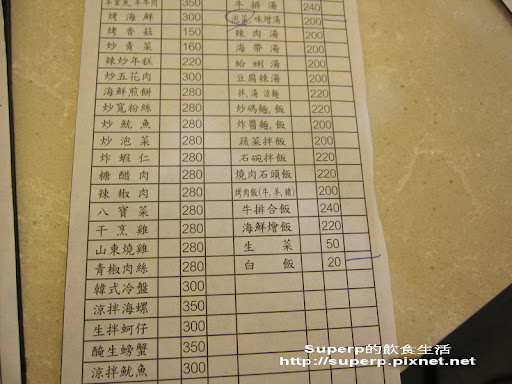 350 牛排湯 240
烤海鮮 300 泡菜,味增湯 200
烤香菇 150 辣肉湯 200
炒青菜 160 海帶湯 200
辣炒年糕 220 蛤蜊湯 200
炒五花肉 300 豆腐辣湯 200
海鮮煎餅 280 拌,湯涼麵 220
炒寬粉絲 280 炒碼麵,飯 200
炒魷魚 280 炸醬麵,飯 200
炒泡菜 280 蔬菜拌飯 200
炸蝦仁 280 石碗拌飯 220
糖醋肉 280 燒肉石頭飯 220
辣椒肉 280 烤肉飯(牛,羊,豬) 200
八寶菜 280 牛排合飯 240
干烹雞 280 海鮮燴飯 220
山東燒雞 280 生菜 50
青椒肉絲 280 白飯 20
韓式冷盤 300
涼拌海螺 350
生拌蚵仔 300
醃生螃蟹 350
涼拌魷魚 300
Superp的飲食生活
http://superp.pixnet.net